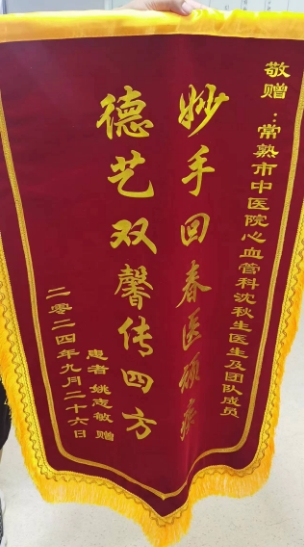 敬赠：常熟市中医院心血管科沈秋生医生及团队成员
妙手回春医顽疾
德艺双馨传四方
患者 姚志敏 赠
二零二四年九月二十六日